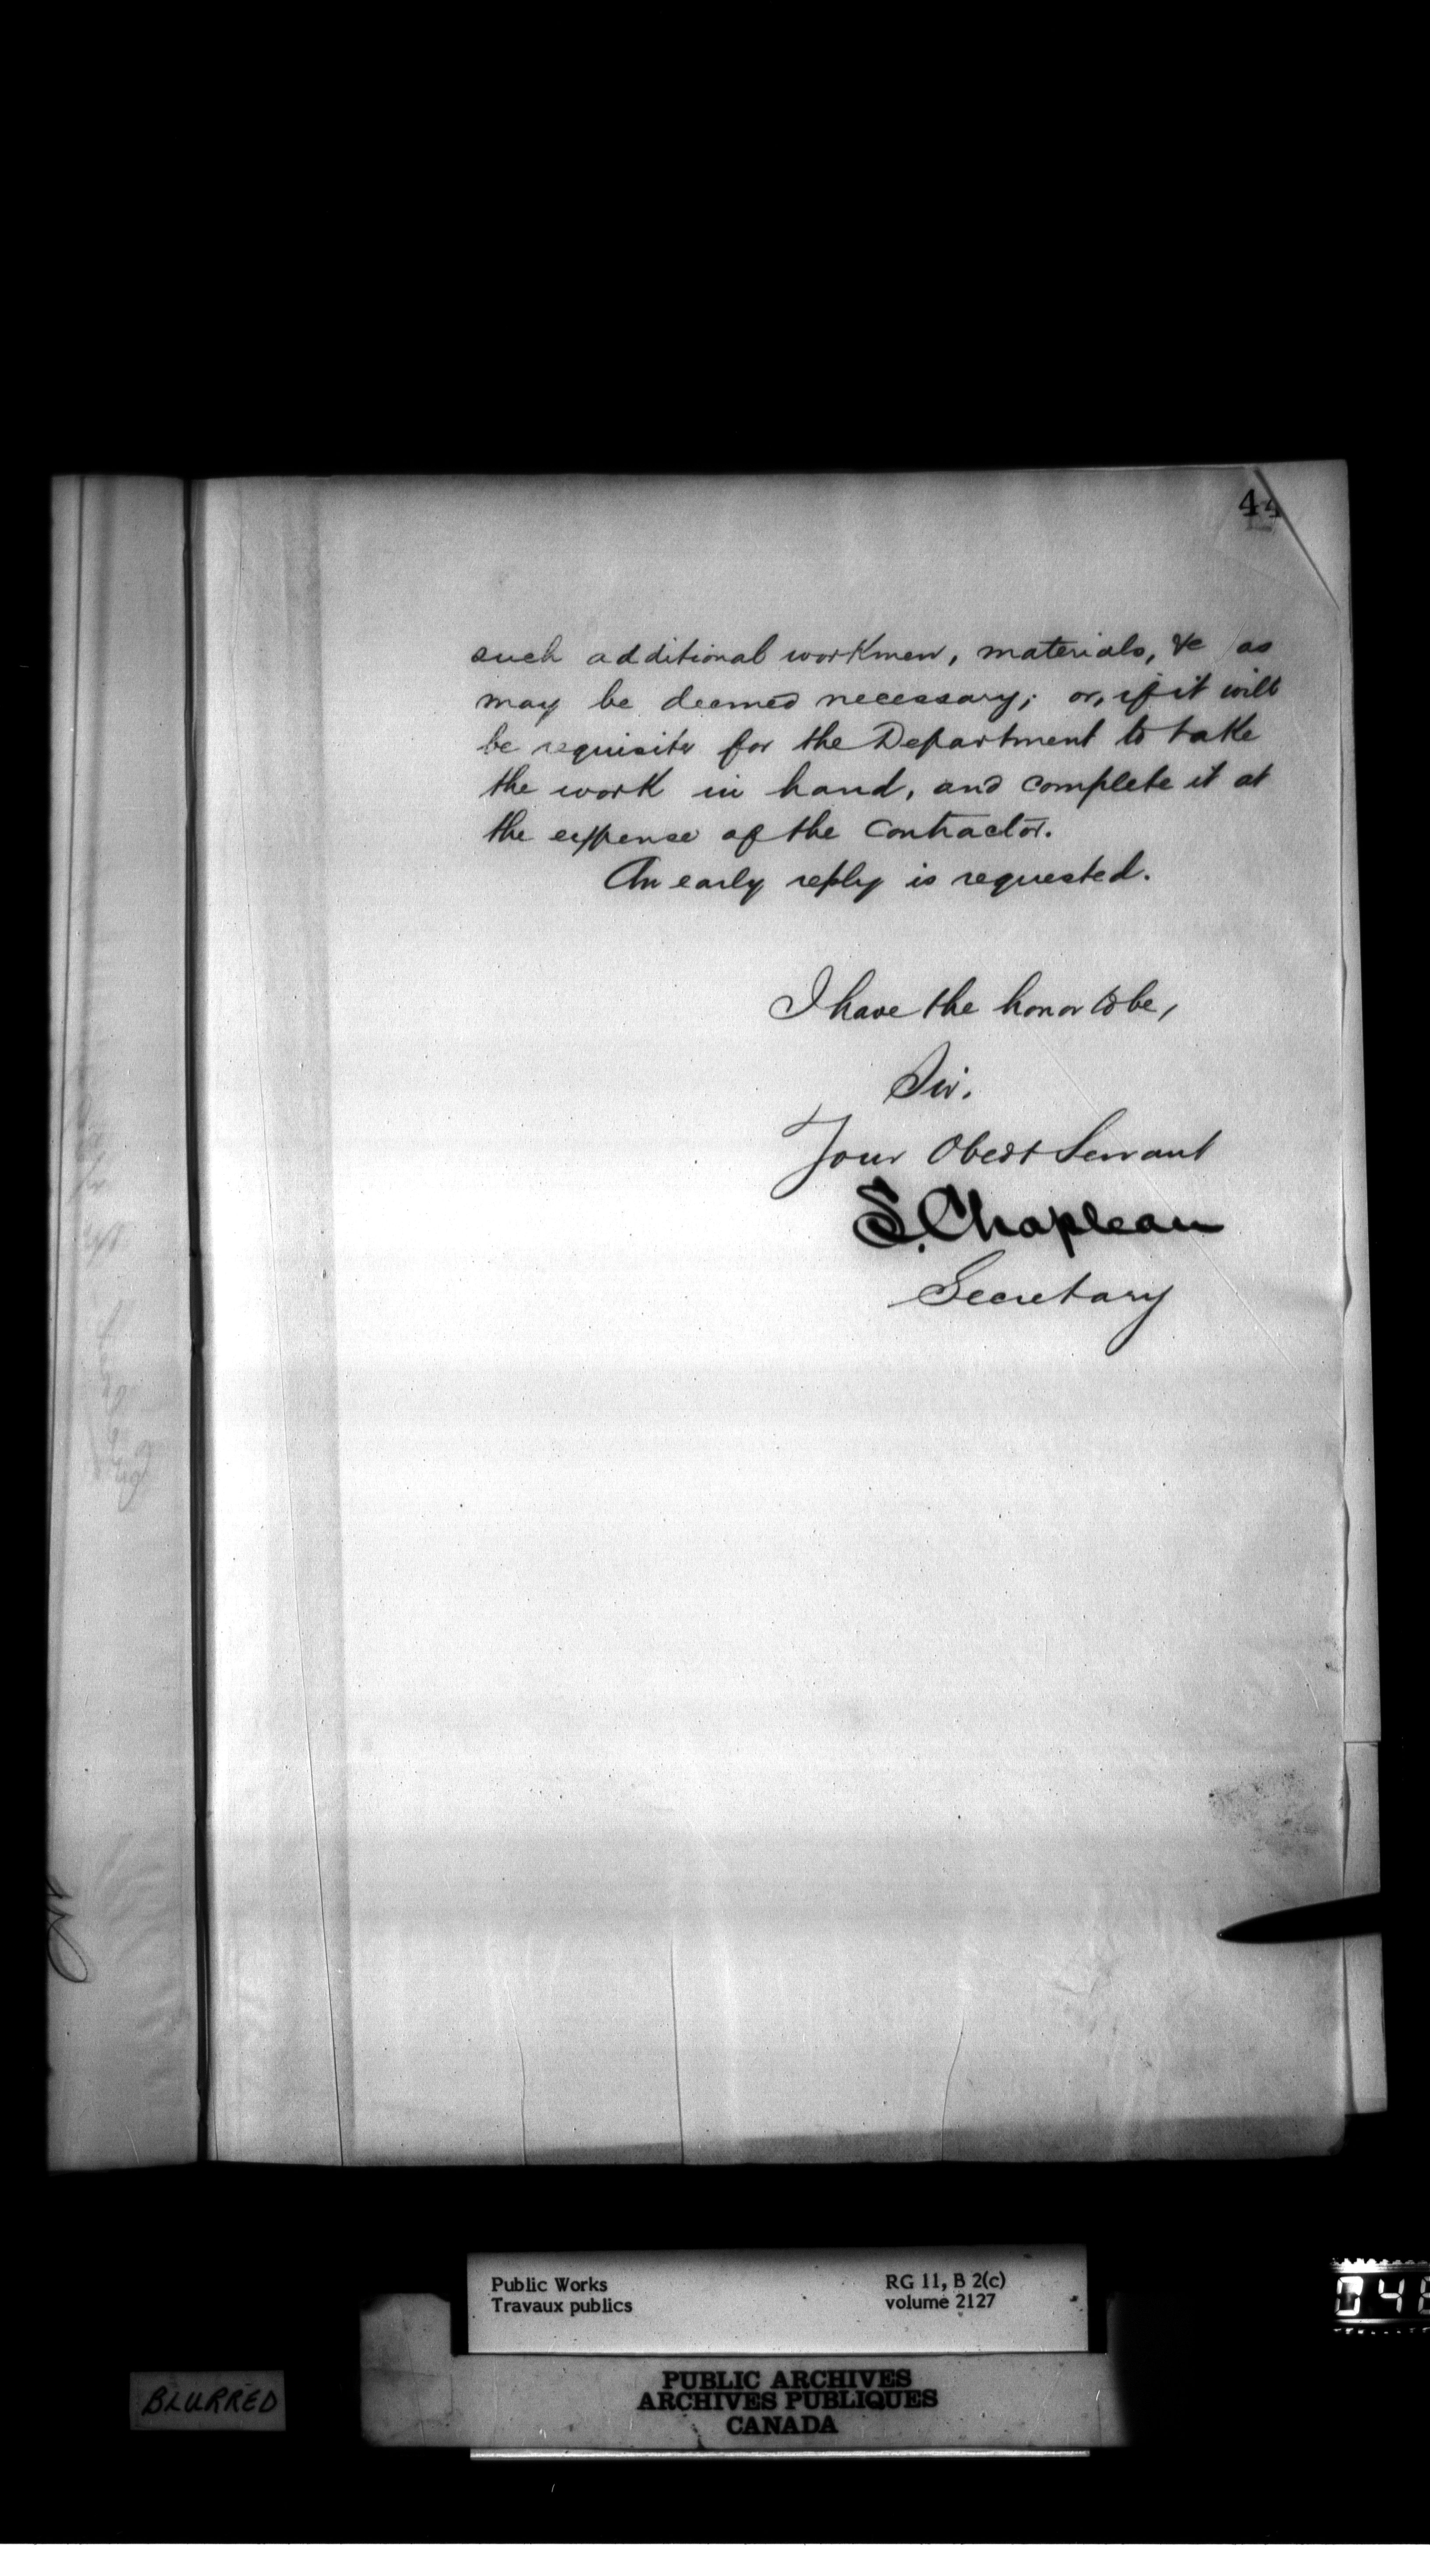 44
such additional workmen, materials, &c as
may be deemed necessary; or, if it will
be requisite for the Department to take
the work in hand, and complete it at
the expense of the contractor.
An early reply is requested.
I have the honor to be,
Sir.
Your Obedt Servant
S. Chapleau
Secretary
Public Works
Travaux publics
RG 11, B 2(c)
volume 2127
BLURRED
PUBLIC ARCHIVES
ARCHIVES PUBLIQUES
CANADA